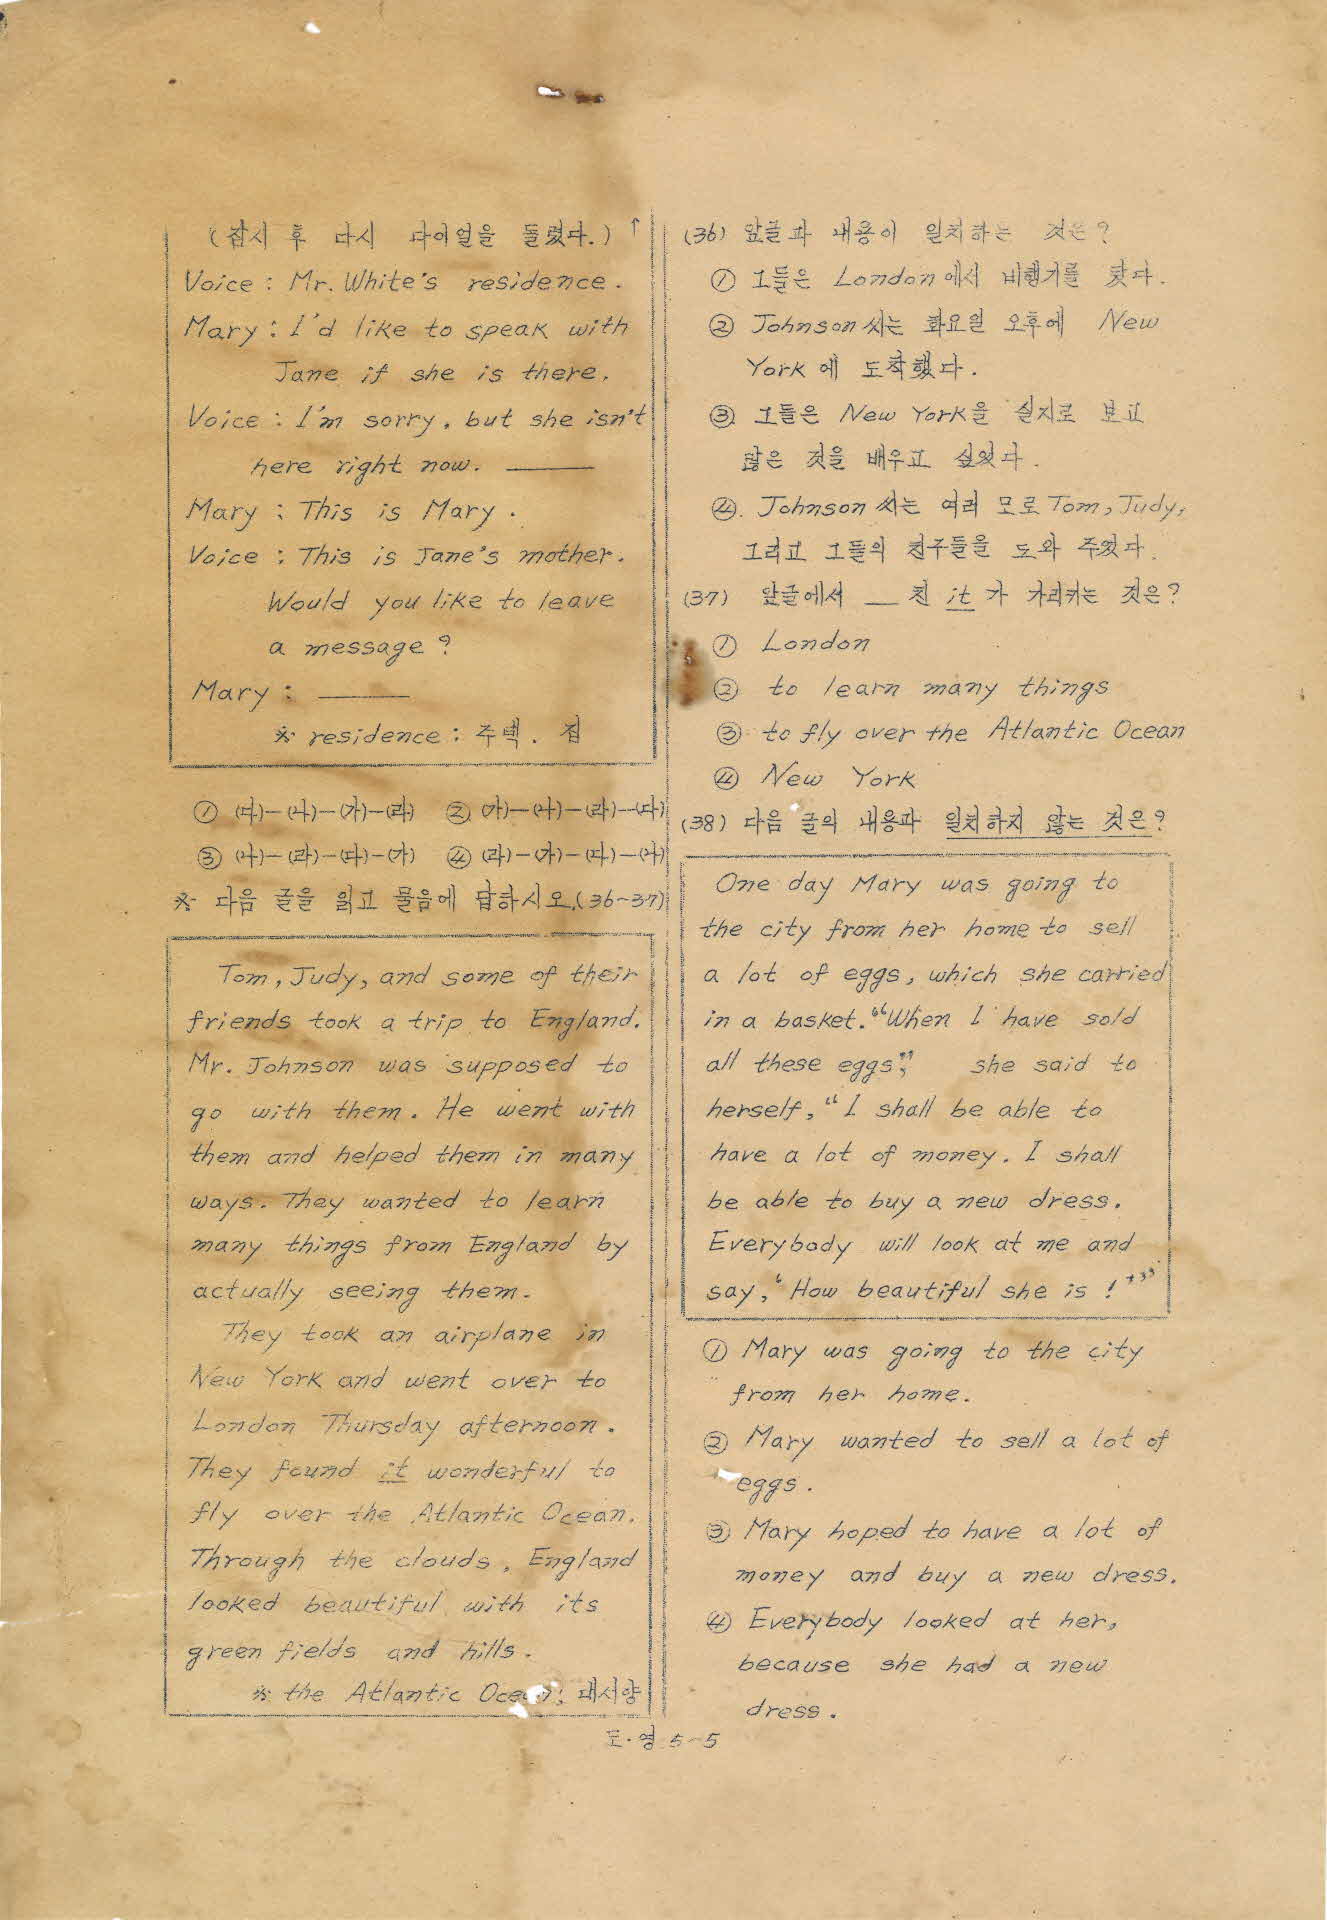 (잠시 후 다시 다이얼을 돌렸다.) ↑
Voice : Mr. White's residence.
Mary : I'd like to speak with
Jane if she is there.
Voice : I'm sorry, but she isn't
here right now. ———
Mary : This is Mary.
Voice : This is Jane's mother.
Would you like to leave
a message?
Mary : ———
※ residence : 주택. 집
① (다)-(나)-(가)-(라) ② (가)-(나)-(라)-(다)
③ (나)-(라)-(다)-(가) ④ (라)-(가)-(다)-(나)
※ 다음 글을 읽고 물음에 답하시오.(36~37)
Tom, Judy, and some of their
friends took a trip to England.
Mr. Johnson was supposed to
go with them. He went with
them and helped them in many
ways. They wanted to learn
many things from England by
actually seeing them.
They took an airplane in
New York and went over to
London Thursday afternoon.
They found it wonderful to
fly over the Atlantic Ocean.
Through the clouds, England
looked beautiful with its
green fields and hills.
※ the Atlantic Ocean; 대서양
(36) 앞글과 내용이 일치하는 것은?
① 그들은 London에서 비행기를 탔다.
② Johnson씨는 화요일 오후에 New
York에 도착했다.
③ 그들은 New York을 실지로 보고
많은 것을 배우고 싶었다.
④ Johnson씨는 여러 모로 Tom, Judy,
그리고 그들의 친구들을 도와 주었다.
(37) 앞글에서 __ 친 it가 가리키는 것은?
① London
② to learn many things
③ to fly over the Atlantic Ocean
④ New York
(38) 다음 글의 내용과 일치하지 않는 것은?
One day Mary was going to
the city from her home to sell
a lot of eggs, which she carried
in a basket. "When I have sold
all these eggs," she said to
herself, "I shall be able to
have a lot of money. I shall
be able to buy a new dress.
Everybody will look at me and
say, 'How beautiful she is!'"
① Mary was going to the city
from her home.
② Mary wanted to sell a lot of
eggs.
③ Mary hoped to have a lot of
money and buy a new dress.
④ Everybody looked at her,
because she had a new
dress.
도·영 5-5